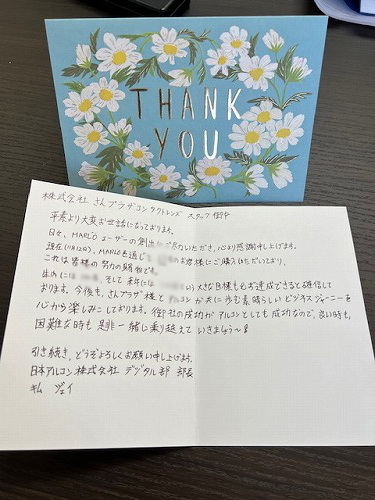 THANK
YOU
株式会社 さんプラザコンタクトレンズ スタッフ 御中
平素より大変お世話になっております。
日々、MARLO ユーザーの創出にご尽力いただき、心より感謝申し上げます。
現在(11月12日)、MARLOを通じて のお客様にご購入いただいており、
これは皆様の努力の賜物です。
年内には そして来年には という大きな目標も必ず達成できると確信して
おります。今後も、さんプラザ様とアルコンが共に歩む素晴らしいビジネスジャーニーを
心から楽しみにしております。御社の成功がアルコンとしても成功なので、良い時も、
困難な時も是非一緒に乗り越えていきましょう〜!
引き続き、どうぞよろしくお願い申し上げます。
日本アルコン株式会社 デジタル部 部長
キム ジェイ